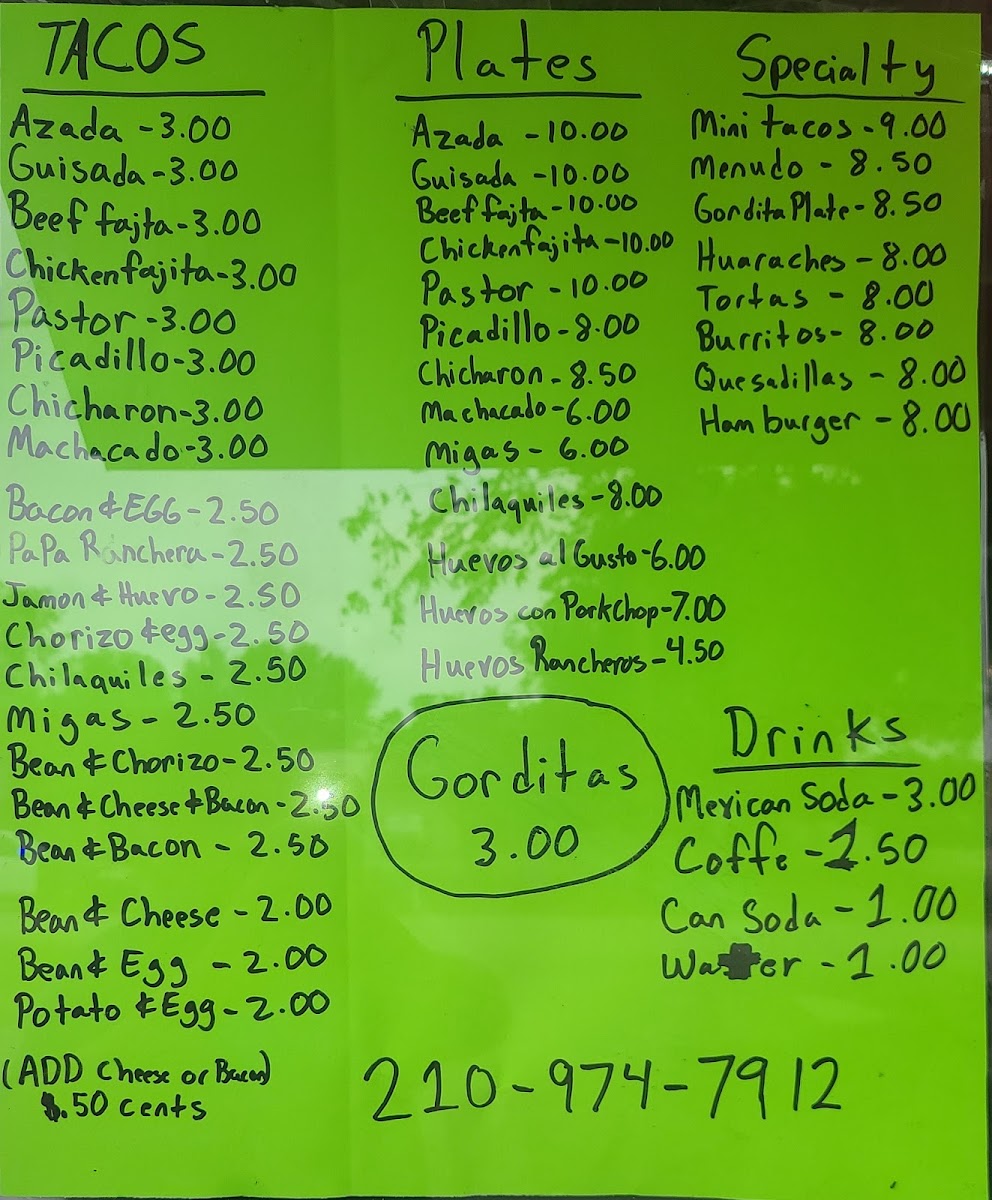 TACOS
Azada - 3.00
Guisada - 3.00
Beef fajta - 3.00
Chicken fajita - 3.00
Pastor - 3.00
Picadillo - 3.00
Chicharon - 3.00
Machacado - 3.00
Bacon & EGG - 2.50
PaPa Ranchera - 2.50
Jamon & Huevo - 2.50
Chorizo & egg - 2.50
Chilaquiles - 2.50
Migas - 2.50
Bean & Chorizo - 2.50
Bean & Cheese & Bacon - 2.50
Bean & Bacon - 2.50
Bean & Cheese - 2.00
Bean & Egg - 2.00
Potato & Egg - 2.00
(ADD Cheese or Bacon)
$.50 cents
Plates
Azada - 10.00
Guisada - 10.00
Beef fajta - 10.00
Chicken fajita - 10.00
Pastor - 10.00
Picadillo - 8.00
Chicharon - 8.50
Machacado - 6.00
Migas - 6.00
Chilaquiles - 8.00
Huevos al Gusto - 6.00
Huevos con Pork Chop - 7.00
Huevos Rancheros - 4.50
Gorditas
3.00
Specialty
Mini tacos - 9.00
Menudo - 8.50
Gordita Plate - 8.50
Huaraches - 8.00
Tortas - 8.00
Burritos - 8.00
Quesadillas - 8.00
Hamburger - 8.00
Drinks
Mexican Soda - 3.00
Coffe - .50
Can Soda - 1.00
Water - 1.00
210-974-7912